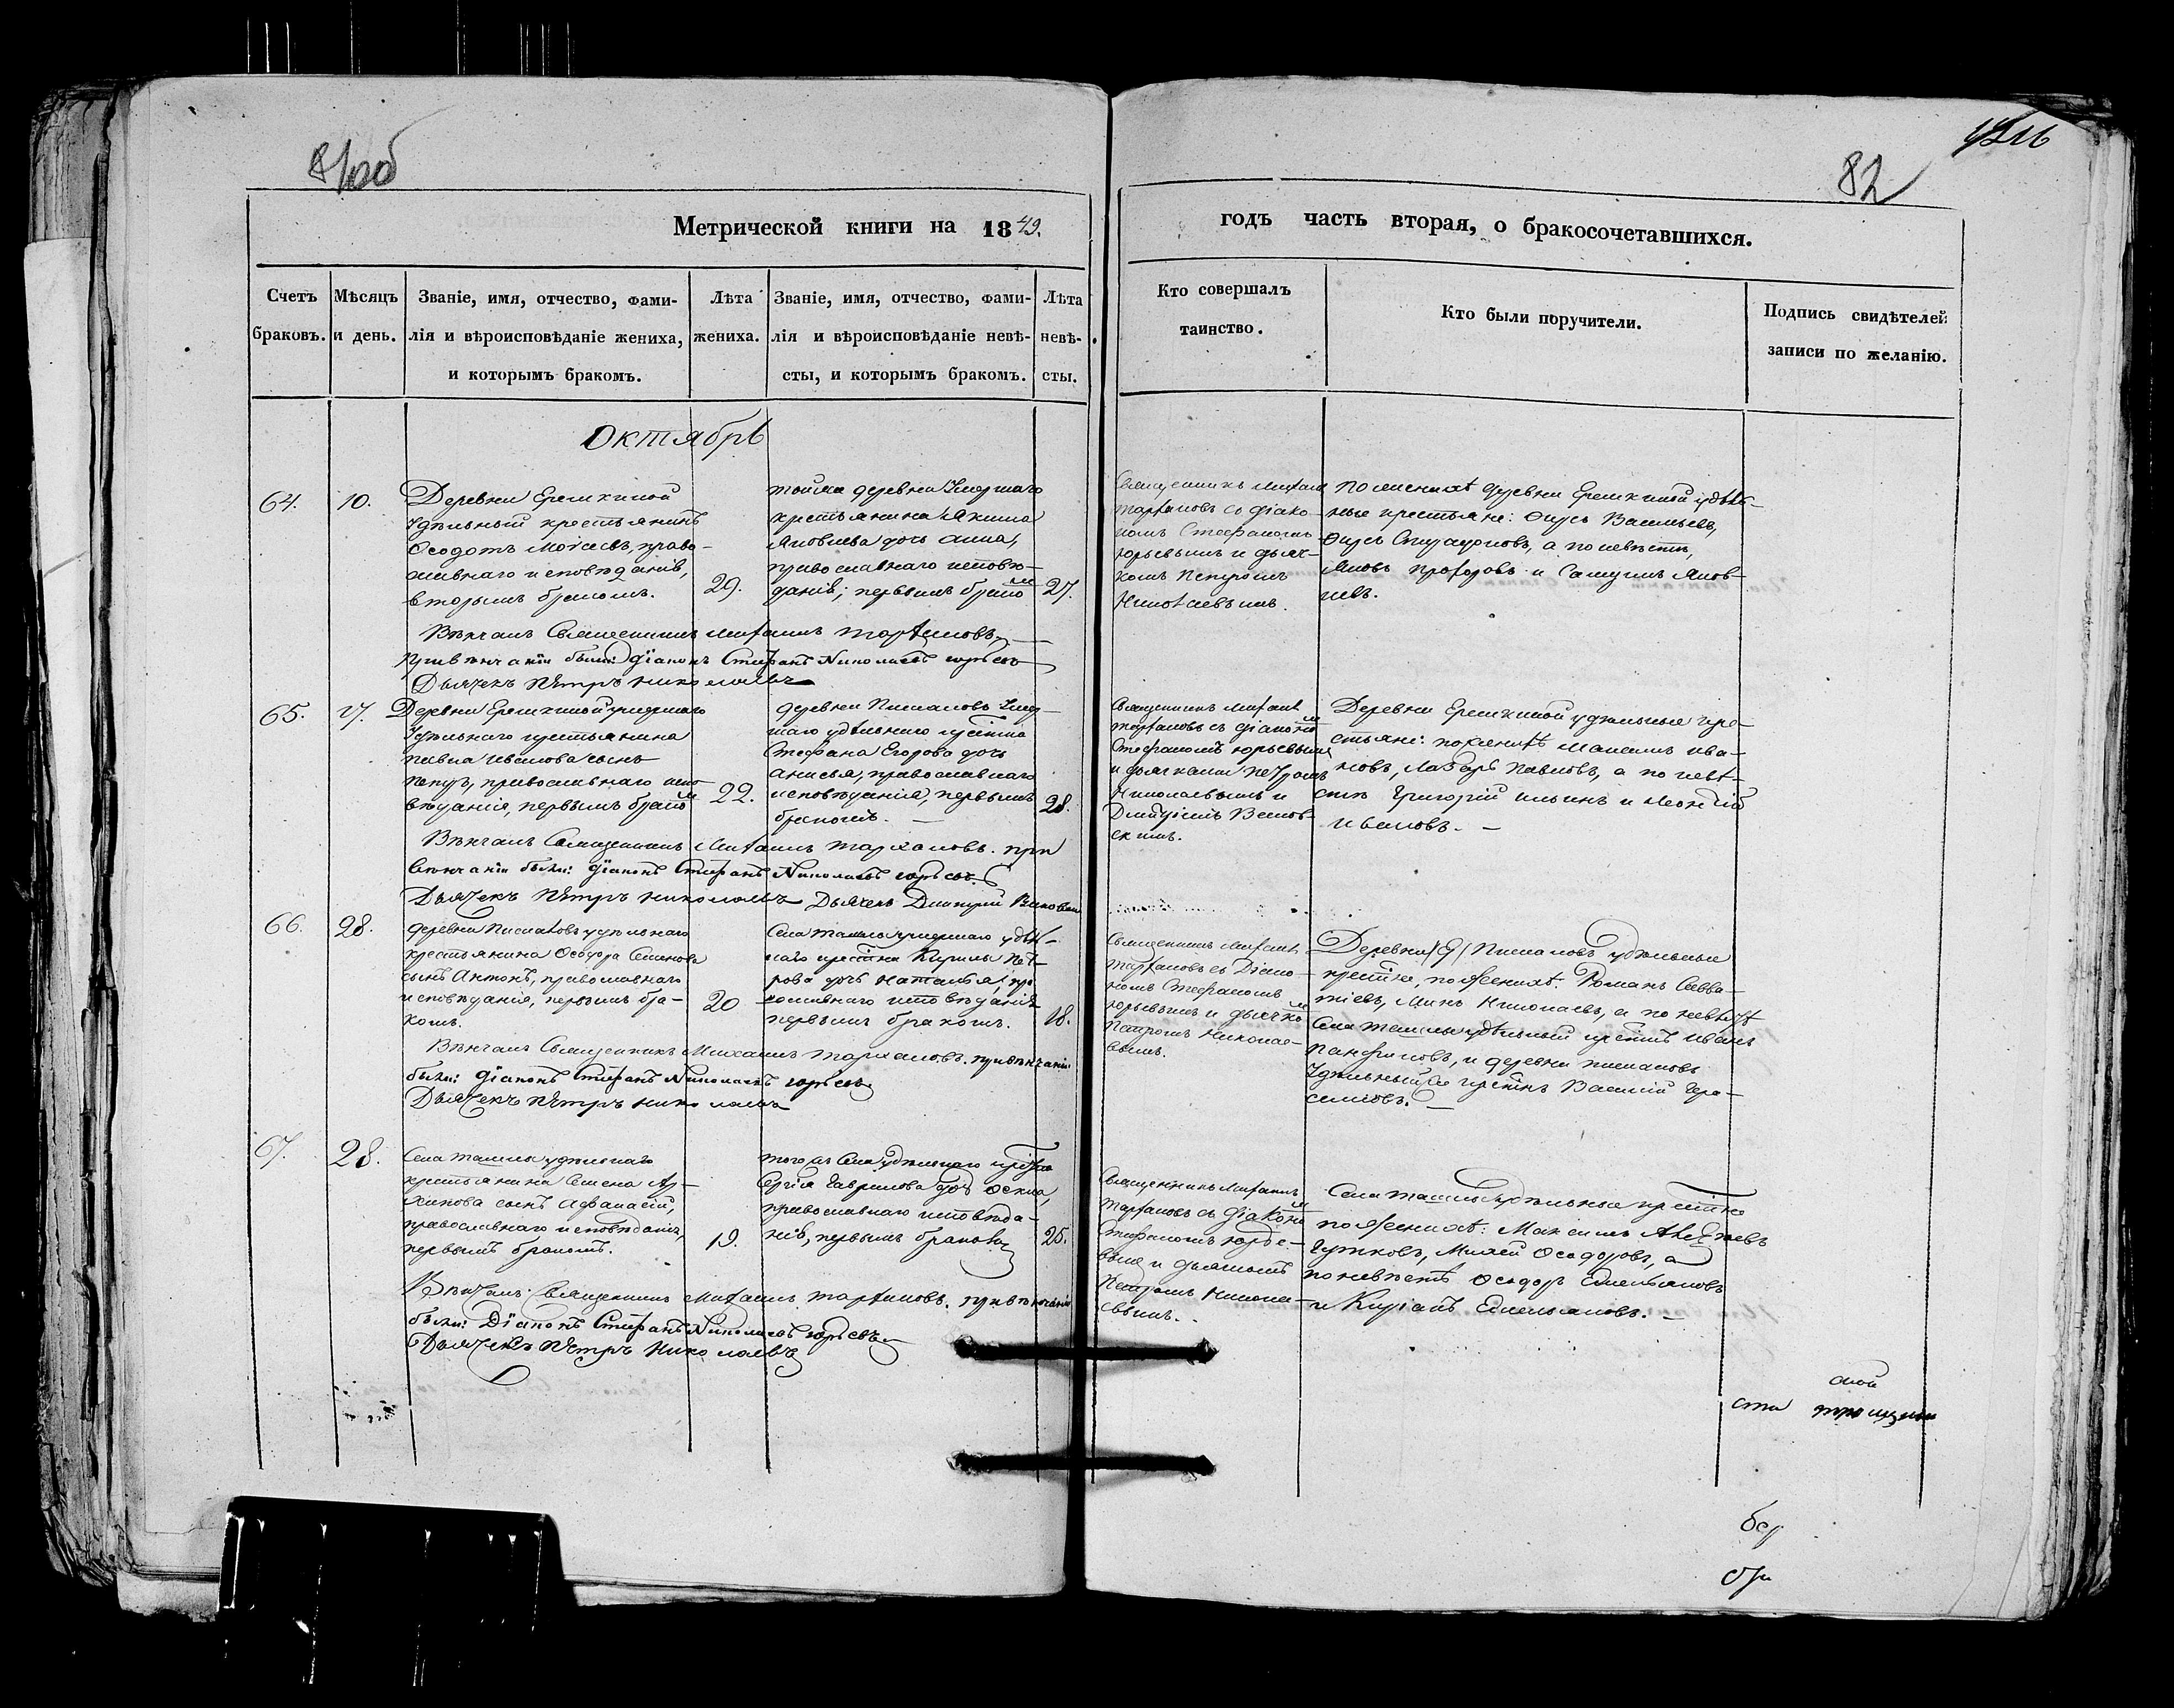 81об
82
Метрической книги на 1849.
годъ часть вторая, о бракосочетавшихся.
Счетъ браковъ.
Мѣсяцъ и день.
Званіе, имя, отчество, фами-
лія и вѣроисповѣданіе жениха,
и которымъ бракомъ.
Лѣта
жениха.
Званіе, имя, отчество, фами-
лія и вѣроисповѣданіе невѣ-
сты, и которымъ бракомъ.
Лѣта
невѣ-
сты.
Кто совершалъ
таинство.
Кто были поручители.
Подпись свидѣтелей
записи по желанію.
Октябрь
64.
10.
Деревни Ерыклиной
Удѣльный крестьянинъ
Ѳеодотъ Моісеевъ, право-
славнаго исповѣданія,
вторымъ бракомъ.
29.
тойже деревни Умершаго
крестьянина Якима
Яковлева дочь Анна,
православнаго исповѣ-
данія; первымъ бракомъ
27.
Священникъ Михаилъ
Тархановъ съ діако-
номъ Стефаномъ
Юрьевымъ и дьяч-
комъ Петромъ
Николаевымъ.
По женихѣ деревни удѣль-
ные крестьяне: Васильевъ,
а по невѣстѣ,
Яковъ Прохоровъ и Самуилъ Яков-
левъ.
Вѣнчалъ Священникъ Михаилъ Тархановъ,
При вѣнчаніи были: Діаконъ Стефанъ Николаевъ Юрьевъ
Дьячекъ Петръ Николаевъ
65.
17.
Деревни умершаго
Удѣльнаго крестьянина
Павла Иванова сынъ
Петръ, православнаго испо-
вѣданія, первымъ бракомъ
22.
деревни умер-
шаго удѣльнаго крестьянина
Стефана Егорова дочь
Анисья, православнаго
исповѣданія, первымъ
бракомъ.
28.
Священникъ Михаилъ
Тархановъ съ діакономъ
Стефаномъ Юрьевымъ
и дьячками Петромъ
Николаевымъ и
Димитріемъ
Деревни удѣльные кре-
стьяне: по женихѣ Максимъ Ива-
новъ, Лазарь Павловъ, а по невѣ-
стѣ Григорій Ильинъ и Леонтій
Ивановъ.
Вѣнчалъ Священникъ Михаилъ Тархановъ. при
вѣнчаніи были: Діаконъ Стефанъ Николаевъ Юрьевъ.
Дьячекъ Петръ Николаевъ Дьячекъ Димитрій
66.
28.
деревни удѣльнаго
крестьянина Ѳеодора Семенова
сынъ Антонъ, православнаго
исповѣданія, первымъ бра-
комъ.
20
Села Ташлы умершаго удѣль-
наго крестьянина Кирилы Пет-
рова дочь Наталья, пра-
вославнаго исповѣданія
первымъ бракомъ.
18.
Священникъ Михаилъ
Тархановъ съ Діако-
номъ Стефаномъ
Юрьевымъ и дьячкомъ
Петромъ Николае-
вымъ.
Деревни удѣльные
крестьяне, по женихѣ: Романъ Савва-
тіевъ, Николаевъ, а по невѣстѣ
Села Ташлы удѣльный крестьянинъ Иванъ
Панфиловъ, и деревни
Удѣльный же крестьянинъ Василій Гера-
симовъ.
Вѣнчалъ Священникъ Михаилъ Тархановъ. при вѣнчаніи
были: Діаконъ Стефанъ Николаевъ Юрьевъ
Дьячекъ Петръ Николаевъ
67.
28.
Села Ташлы удѣльнаго
крестьянина Семена Ар-
хипова сынъ Афанасій,
православнаго исповѣданія,
первымъ бракомъ.
19.
того жъ Села удѣльнаго крестьянина
Сергія Гаврилова дочь
православнаго исповѣда-
нія, первымъ бракомъ
25.
Священникъ Михаилъ
Тархановъ съ Діакономъ
Стефаномъ Юрье-
вымъ и дьячкомъ
Петромъ Никола-
евымъ.
Села Ташлы удѣльные крестьяне
по женихѣ: Максимъ
Ѳеодоровъ, а
по невѣстѣ Ѳеодоръ Емельяновъ
и Емельяновъ.
Вѣнчалъ: Священникъ Михаилъ Тархановъ. при вѣнчаніи
были: Діаконъ Стефанъ Николаевъ Юрьевъ.
Дьячекъ Петръ Николаевъ